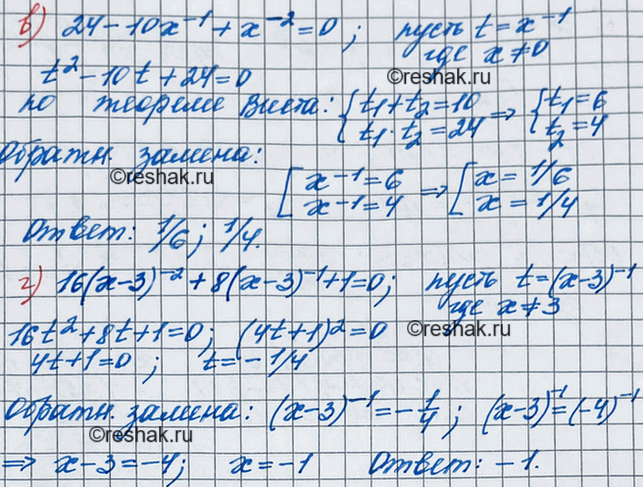 в) 24-10x⁻¹+x⁻²=0; пусть t=x⁻¹
где x≠0
t²-10t+24=0
по теореме Виета: {t₁+t₂=10 => {t₁=6
t₁·t₂=24 t₂=4
Обратн. замена:
©reshak.ru
[x⁻¹=6 => [x=1/6
x⁻¹=4 x=1/4
Ответ: 1/6; 1/4.
г) 16(x-3)⁻²+8(x-3)⁻¹+1=0; пусть t=(x-3)⁻¹
где x≠3
16t²+8t+1=0; (4t+1)²=0
©reshak.ru
4t+1=0; t=-1/4
Обратн. замена: (x-3)⁻¹=-1/4; (x-3)⁻¹=(-4)⁻¹
©reshak.ru
=> x-3=-4; x=-1 Ответ: -1.